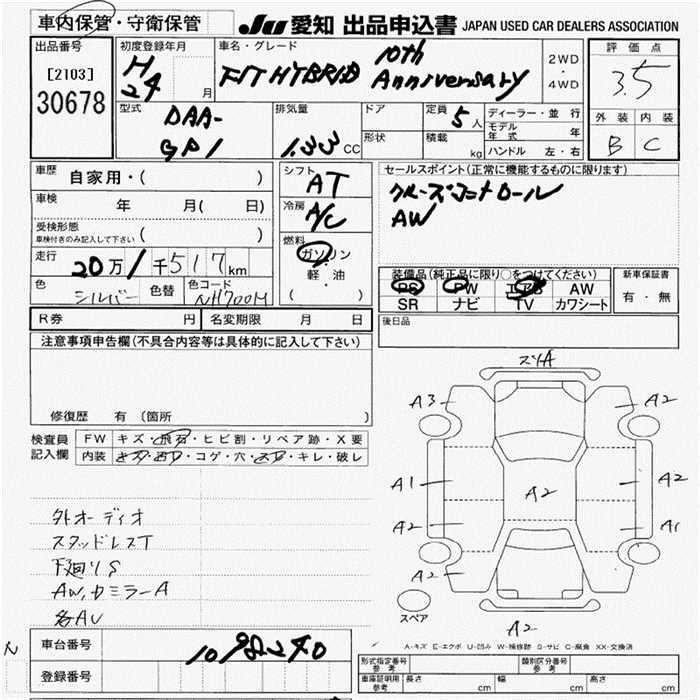 車内保管・守衛保管
JU 愛知 出品申込書 JAPAN USED CAR DEALERS ASSOCIATION
出品番号
[2103]
30678
初度登録年月
H
24 月
車名・グレード
FIT HYBRID 10th Anniversary
2WD
・
4WD
評価点
3.5
外装 内装
B C
型式
DAA-
GP1
排気量
1.33 CC
ドア
形状
定員 5人
積載 kg
ディーラー・並行
モデル年式 年
ハンドル 左・右
車歴 自家用・( )
車検 年 月( 日)
受検形態
車検付きのみ記入して下さい ( )
走行 20万1千517km
色 シルバー 色替 色コード NH700M
シフト AT
冷房 A/C
燃料
ガソリン
・
軽油
( )
セールスポイント(正常に機能するものに限ります)
クルーズコントロール
AW
装備品(純正品に限り○をつけてください)
PS PW エアB AW
SR ナビ TV カワシート
新車保証書
有・無
R券 円 名変期限 月 日
後日品
注意事項申告欄(不具合内容等は具体的に記入して下さい)
修復歴 有(箇所 )
検査員記入欄
FW キズ・飛石・ヒビ割・リペア跡・X要
内装 コゲ・穴・キレ・破レ
外オーディオ
スタッドレスT
下廻りS
AW,ドミラーA
各AU
ズリA
A3 A2
A1 A2
A2
A2 A1
A2
A2
スペア
A-キズ E-エクボ U-凹み W-補修跡 S-サビ C-腐食 XX-交換済
N
車台番号 1098240
登録番号
型式指定番号 参考
類別区分番号 参考
車庫証明用 参考 長さ cm 幅 cm 高さ cm